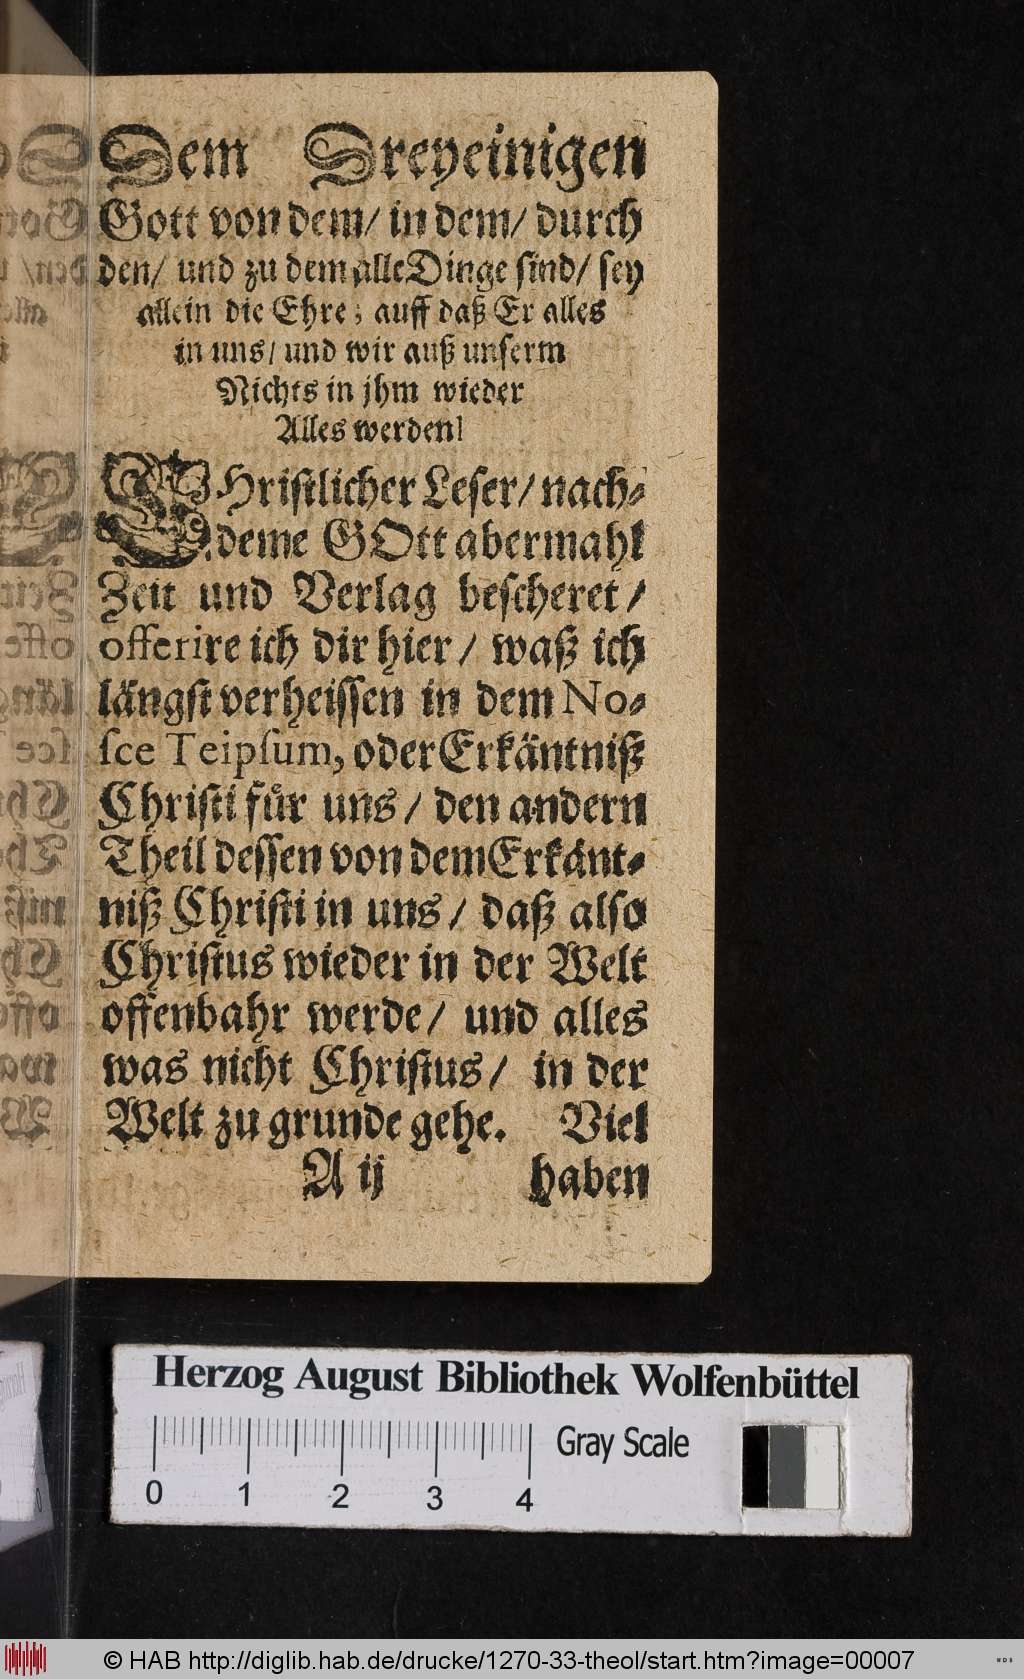 Dem Dreyeinigen
Gott von dem/ in dem/ durch
den/ und zu dem alle Dinge sind/ sey
allein die Ehre; auff daß Er alles
in uns/ und wir auß unserm
Nichts in jhm wieder
Alles werden!
CHristlicher Leser/ nach-
deme GOtt abermahl
Zeit und Verlag bescheret/
offerire ich dir hier/ waß ich
längst verheissen in dem No-
sce Teipsum, oder Erkäntniß
Christi fůr uns/ den andern
Theil dessen von dem Erkänt-
niß Christi in uns/ daß also
Christus wieder in der Welt
offenbahr werde/ und alles
was nicht Christus/ in der
Welt zu grunde gehe. Viel
A ij haben
Herzog August Bibliothek Wolfenbüttel
Gray Scale
0 1 2 3 4
© HAB http://diglib.hab.de/drucke/1270-33-theol/start.htm?image=00007